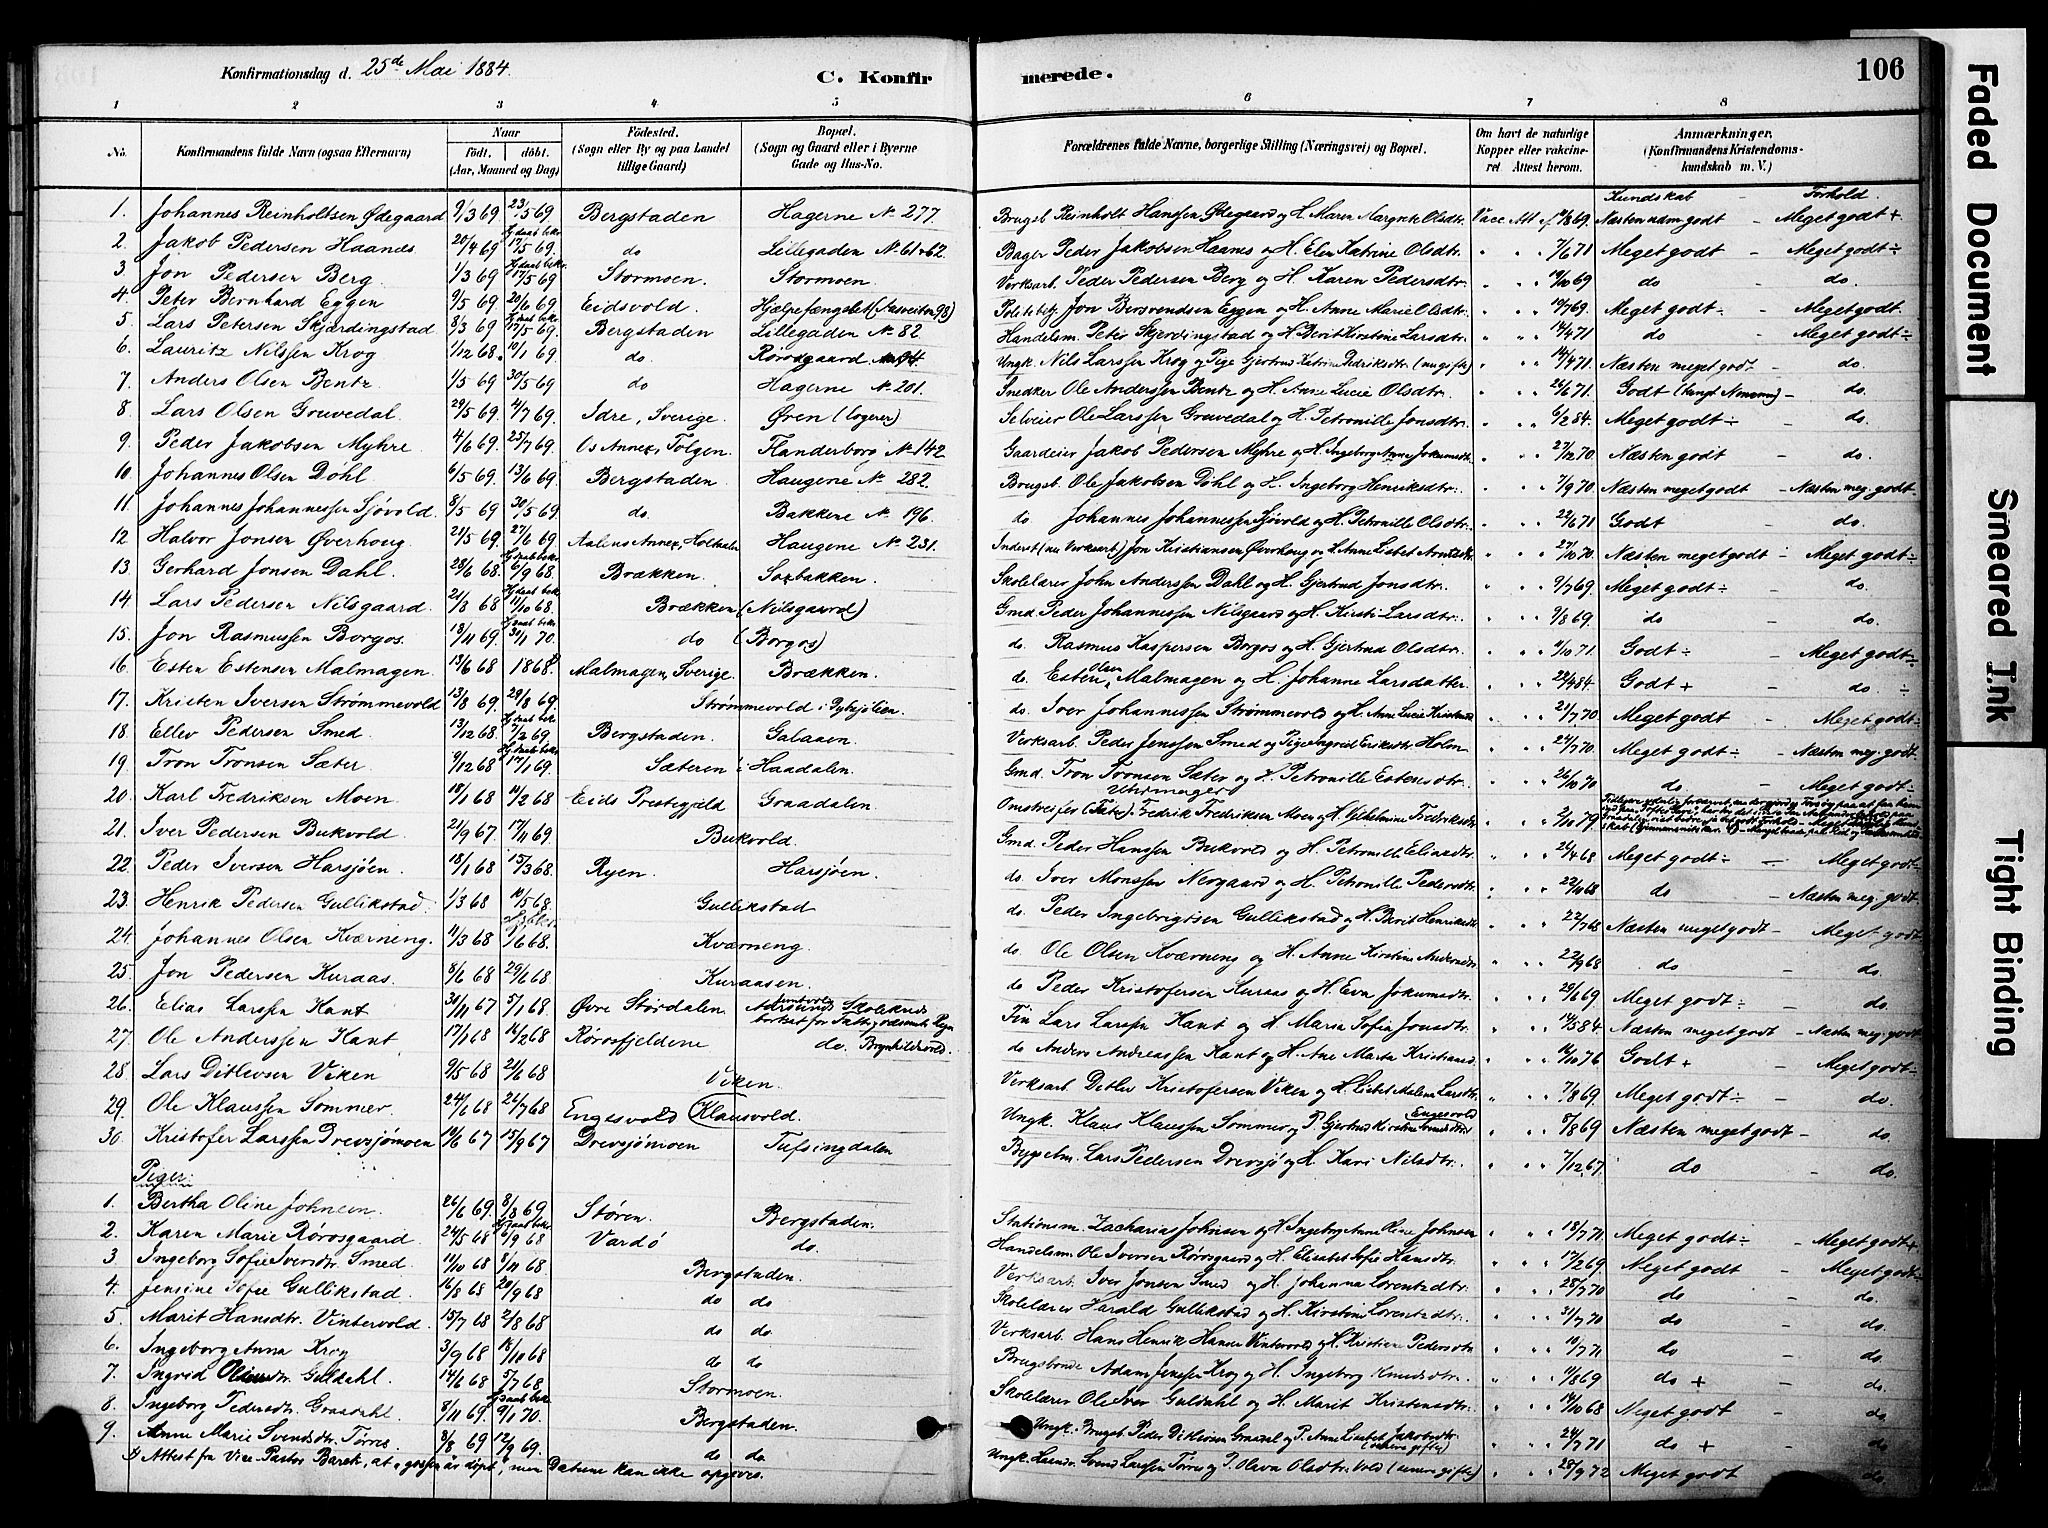 Konfirmationsdag d. 25de Mai 1884. C. Konfirmerede. 106
1 2 3 4 5 6 7 8
No. Konfirmandens fulde Navn (ogsaa Efternavn) Naar Födt. döbt. (Aar, Maaned og Dag) Födested. (Sogn eller By og paa Landet tillige Gaard) Bopæl. (Sogn og Gaard eller i Byerne Gade og Hus-No. Forældrenes fulde Navne, borgerlige Stilling (Næringsvei) og Bopæl. Om havt de naturlige Kopper eller vakcineret Attest herom. Anmærkninger. (Konfirmandens Kristendomskundskab m. V.)
Kundskab - Forhold
1. Johannes Reinholtsen Ødegaard 9/3 69 23/5 69. Bergstaden Hagerne No 277. Brugsb. Reinholt Hanssen Ødegaard og H. Maren Margrete Olsdtr. Vacc. Att. af 19/8 69. Næsten udm. godt - Meget godt +
2. Jakob Pedersen Haanes 20/4 69 Hj.daab bekr. 17/5 69. do Lillegaden No 61+62. Bager Peder Jakobsen Haanes og H. Elen Katrine Olsdtr. " " " 7/6 71 Meget godt - Meget godt ÷
3. Jon Pedersen Berg. 1/3 69 Hj.daab bekr. 17/5 69 Stormoen Stormoen Verksarb. Peder Pedersen Berg og H. Karen Pedersdtr. " " " 14/10 69 do - do.
4. Peter Bernhard Eggen 9/5 69 20/6 69 Eidsvold. Hjælpefængslet Politibtj. Jon Bersvendsen Eggen og H. Anne Marie Olsdtr. " " " 10/7 69. Meget godt ÷ - Meget godt.
5. Lars Petersen Skjerdingstad 8/3 69 Hj.daab bekr. 17/5 69. Bergstaden Lillegaden No 82. Handelsm. Peter Skjerdingstad og H. Berit Kirstine Larsdtr. " " " 14/4 71 do - Meget godt ÷
6. Lauritz Nilssen Krog 1/12 68. 10/1 69. do. Rørosgaard Ungk. Nils Larssen Krog og Pige Gjertrud Katrine Fredriksdtr. (nu gifte) " " " 14/4 71. Næsten meget godt - do.
7. Anders Olsen Bentz 1/5 69 30/5 69 do Hagerne No 201. Snedker Ole Anderssen Bentz og H. Anne Lucie Olsdtr. " " " 26/6 71 Godt - do.
8. Lars Olsen Gruvedal. 29/5 69. 4/7 69. Idre, Sverige. Øren (logerer) Selveier Ole Larssen Gruvedal og H. Petronille Jonsdtr. " " " 6/2 84. Meget godt ÷ - do.
9. Peder Jakobsen Myhre 4/6 69. 25/7 69. Os Annex, Tolgen. Flanderborg No 142 Gaardeier Jakob Pedersen Myhre og H. Ingeborg Anne Jokumsdtr. " " " 27/12 70. Næsten godt - do.
10. Johannes Olsen Döhl 6/5 69. 13/6 69. Bergstaden Haugene No 282. Brugsb. Ole Jakobsen Döhl og H. Ingeborg Henriksdtr. " " " 7/9 70 Næsten meget godt - Næsten meg. godt
11. Johannes Johannessen Sjövold. 8/5 69 30/5 69. do. Bakkene No 196. do Johannes Johannessen Sjövold og H. Petronille Olsdtr. " " " 22/6 71 Godt - do.
12. Halvor Jonsen Øverhoug. 21/5 69. 27/6 69. Aalens Annex, Holtaalen Haugene No 231. Inderst (nu Verksarb) Jon Kristiansen Øverhoug og H. Anne Lisbet Arntsdtr. " " " 27/10 70. Næsten meget godt - Meget godt ÷
13. Gerhard Jonsen Dahl. 28/6 68. Hj.daab bekr. 6/9 68. Brækken. Sørbakken. Skolelærer John Anderssen Dahl og H. Gjertrud Jonsdtr. " " " 9/7 69. Meget godt ÷ do.
14. Lars Pedersen Nilsgaard. 21/8 68 Hj.daab bekr. 11/10 68. Brækken (Nilsgaard) Gmd. Peder Johannessen Nilsgaard og H. Kirsti Larsdtr. " " " 9/8 69. do - do.
15. Jon Rasmussen Borgos. 13/11 69. Hj.daab bekr. 31/1 70. do (Borgos) do. Rasmus Kaspersen Borgos og H. Gjertrud Olsdtr. " " " 11/10 71. Godt ÷ - Meget godt ÷
16. Esten Estensen Malmagen. 13/6 68 1868 Malmagen, Sverige. Brækken. do. Esten Olsen Malmagen og H. Johanne Larsdatter " " " 29/4 84. Godt + - do. ÷
17. Kristen Iversen Strømmevold 13/8 69. 29/8 69. Strømmevold i Rykjølien. do. Iver Johannessen Strømmevold og H. Anne Lucie Kristensd. " " " 21/7 70. Meget godt - Meget godt ÷
18. Ellev Pedersen Smed. 13/12 68. Hj.daab bekr. 7/2 69. Bergstaden. Galaaen. Verksarb. Peder Jenssen Smed og Pige Ingrid Eriksdtr. Holm " " " 24/7 70. Meget godt ÷ - Næsten meg. godt
19. Tron Tronsen Sæter 9/12 68 Hj.daab bekr. 17/1 69. Sæteren i Haadalen. Gmd. Tron Tronsen Sæter og H. Petronille Estensdtr. " " " 26/10 70 do - Meget godt ÷
20. Karl Fredriksen Moen. 18/1 68 14/2 68 Eids Prestegjeld Graadalen. Omstreifer (Tater) Uhrmager Fredrik Fredriksen Moen og H. Vilhelmine Fredriksdtr. " " " 2/10 79
21. Iver Pedersen Bukvold. 21/9 67 17/11 69. Bukvold. Gmd. Peder Hanssen Bukvold og H. Petronille Eliasdtr. " " " 24/4 68 Meget godt ÷ - Meget godt ÷
22. Peder Iversen Harsjöen. 18/1 68 15/3 68. Ryen. Harsjöen. do. Iver Monssen Nergaard og H. Petronille Pedersdtr. " " " 22/10 68 do - Næsten meg. godt
23. Henrik Pedersen Gullikstad. 1/3 68 10/5 68. Gullikstad do. Peder Ingebrigtsen Gullikstad og H. Berit Henriksdtr. " " " 22/7 68 Næsten meget godt - Meget godt
24. Johannes Olsen Kværneng. 11/3 68 1/6 68. Kværneng. do. Ole Olsen Kværneng og H. Anne Kirstine Andersdtr. " " " 22/9 68 do - do.
25. Jon Pedersen Kuraas. 8/6 68 29/6 68 Kuraasen. do Peder Kristofersen Kuraas og H. Eva Jokumsdtr. " " " 29/6 69. Meget godt ÷ - do.
26. Elias Larssen Kant 30/11 67 5/1 68. Øvre Stördalen. Fin Lars Larssen Kant og H. Maria Sofia Jonsdtr. " " " 14/5 84. Næsten meget godt - Næsten meg. godt
27. Ole Anderssen Kant. 17/1 68 16/2 68 Rörosfjeldene do. Brynhildsvold. do Anders Andreassen Kant og H. Ane Marta Kristiansd. " " " 14/10 76 Godt + - Meget godt ÷
28. Lars Ditlevsen Viken 9/5 68 21/6 68 Viken. Verksarb. Ditlev Kristofersen Viken og H. Lisbet Malene Larsdtr. " " " 7/8 69. Meget godt ÷ - do.
29. Ole Klaussen Sommer. 24/6 68 21/7 68 Engesvold (Klausvold. Ungk. Klaus Klaussen Sommer og P. Gjertrud Kirstine Engesvold " " " 8/8 69 Næsten meget godt - do.
30. Kristofer Larssen Drevsjömoen 19/6 67 15/9 67 Drevsjömoen Tufsingdalen Bygselm. Lars Pedersen Drevsjö og H. Kari Nilsdtr. " " " 7/12 67. do - do.
Piger.
1. Bertha Oline Johnsen. 26/6 69. 8/8 69. Stören. Bergstaden. Stationsm. Zacharias Johnsen og H. Ingeborg Anne Oline Johnsen " " " 18/7 71 Meget godt ÷ - Meget godt +
2. Karen Marie Rörosgaard. 24/5 68 Hj.daab bekr. 6/9 68 Vardö do. Handelsm. Ole Iversen Rörosgaard og H. Elisabet Sofie Hansdtr. " " " 17/2 69. Meget godt - Meget godt ÷
3. Ingeborg Sofie Iversdtr. Smed. 11/10 68 8/11 68. Bergstaden. Verksarb. Iver Jonsen Smed og H. Johanna Lorentzdtr. " " " 28/7 70 do - do.
4. Jensine Sofie Gullikstad. 16/8 68 20/9 68 do do Skolelærer Harald Gullikstad og H. Kirstine Lorentzdtr. " " " 31/7 70 do - do.
5. Marit Hansdtr. Vintervold. 15/7 68 2/8 68 do do. Verksarb. Hans Henrik Hansen Vintervold og H. Kristine Pedersdtr. " " " 10/7 71 do - do.
6. Ingeborg Anna Krog 3/9 68 18/10 68 do do Brugsbonde Adam Jenssen Krog og H. Ingeborg Knudsdtr. " " " 14/8 69 do + - do.
7. Ingrid Olesdtr. Guldahl. 14/6 68 5/7 68. Stormoen. Skolelærer Ole Iver Guldahl og H. Marit Kristensdtr. " " " 14/10 68 Meget godt - do
8. Ingeborg Pedersdtr. Graadahl. 8/11 69. Hj.daab bekr. 9/1 70 Bergstaden. Ungk. Brugsb. Peder Ditlevsen Graadal og P. Anne Lisbet Jakobsdtr. (senere gifte) " " " 24/7 71 do + - do
9. Anne Marie Svendsdtr. Törres. 8/8 69 12/9 69. do do. Ungk. Husmd. Svend Larssen Törres og P. Olava Olsdtr. Vold (senere gifte) " " " 28/9 72 Meget godt - do.
Attest fra Vice-Pastor Barck, at gossen är döpt, men Datum kan ikke opgives.
Faded Document
Smeared Ink
Tight Binding